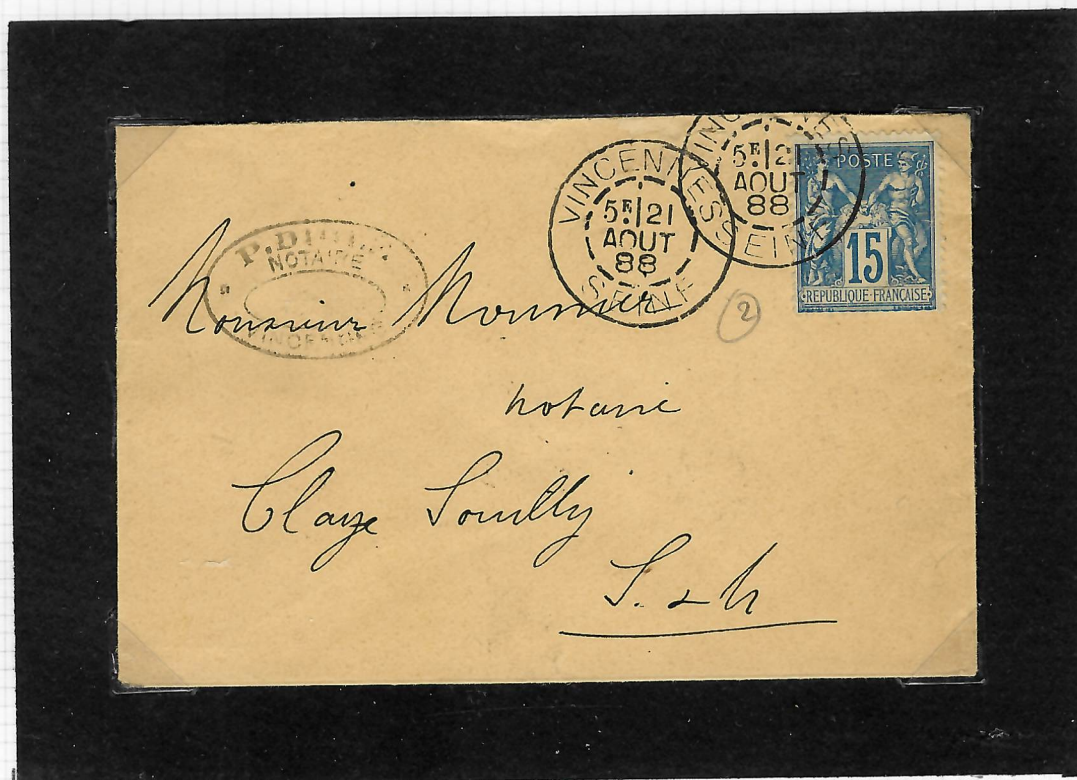 VINCENNES
5E 21
AOUT
88
SEINE
VINCENNES
5E 21
AOUT
88
SEINE
POSTE
15
REPUBLIQUE FRANÇAISE
NOTAIRE
VINCENNES
2
Monsieur Mounier
notaire
Claye Souilly
S. & M